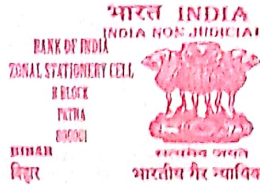 भारत INDIA
INDIA NON JUDICIAL
BANK OF INDIA
ZONAL STATIONERY CELL
B BLOCK
PATNA
800001
BIHAR
बिहार
सत्यमेव जयते
भारतीय गैर न्यायिक